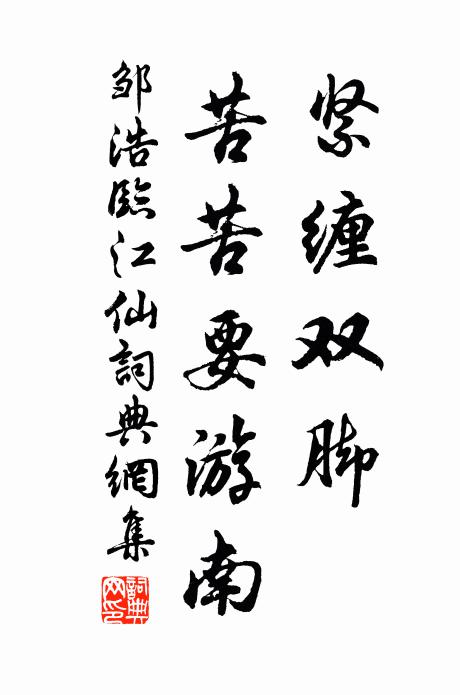 紧缠双脚
苦苦要游南
邹浩臨江仙詞典網集
詞典網印